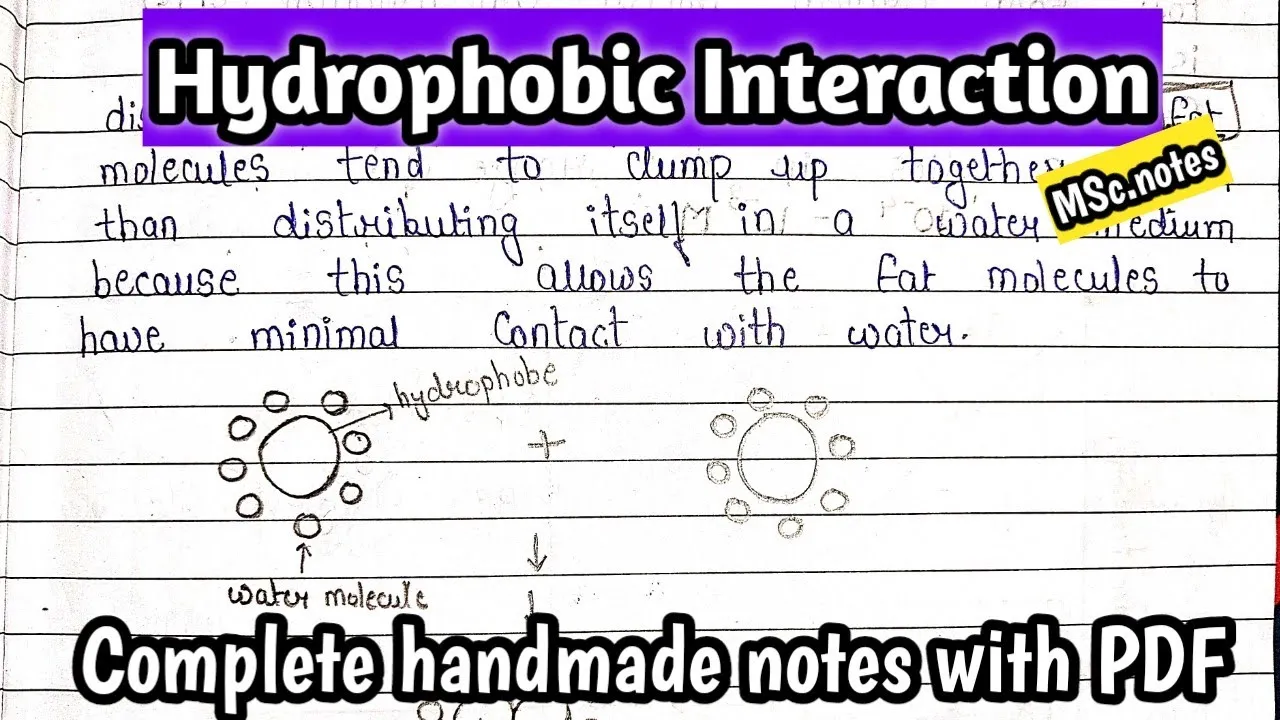 Hydrophobic Interaction
fat
MSc.notes
molecules tend to clump up together
than distributing itself in a water medium
because this allows the fat molecules to
have minimal Contact with water.
hydrophobe
+
water molecule
Complete handmade notes with PDF